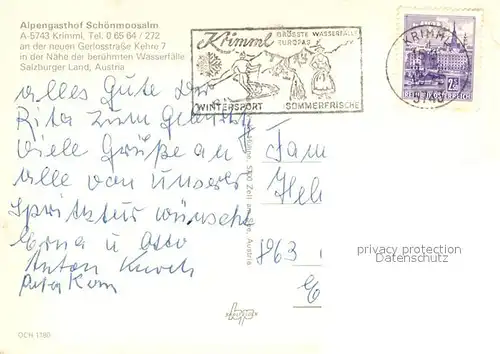 Alpengasthof Schönmoosalm
A-5743 Krimml, Tel. 0 65 64 / 272
an der neuen Gerlosstraße Kehre 7
in der Nähe der berühmten Wasserfälle
Salzburger Land, Austria
Krimml
GRÖSSTE WASSERFÄLLE
EUROPAS
WINTERSPORT SOMMERFRISCHE
KRIMML
5743
alles Gute der
Rita zum
viele Grüße an
alle von unserer
Spritztur wünscht
Erna u Otto
Anton
Fam
863
5700 Zell am See, Austria
privacy protection
Datenschutz
OCH 1180